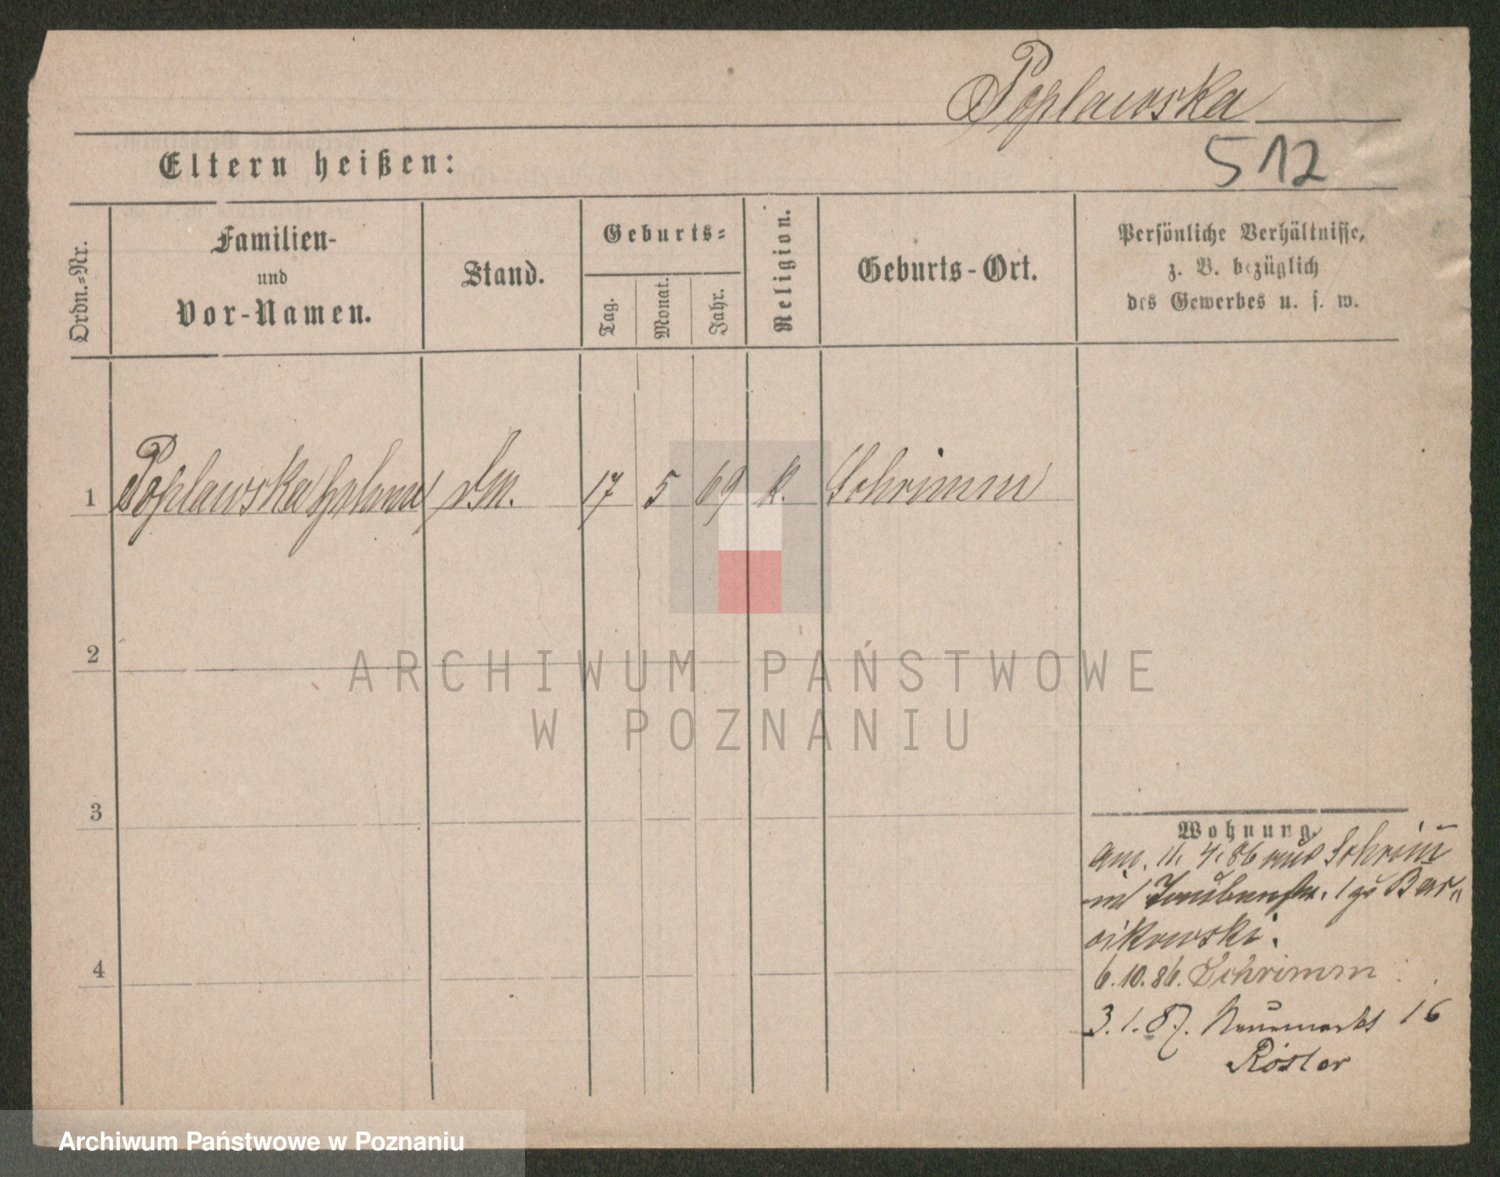 Poplawska
512
Eltern heißen:
Ordn.-Nr.
Familien-
und
Vor-Namen.
Stand.
Geburts-
Tag.
Monat.
Jahr.
Religion.
Geburts-Ort.
Persönliche Verhältnisse,
z. B. bezüglich
des Gewerbes u. s. w.
1 Poplawska Helena 17 5 69 k. Schrimm
2
3
4
Wohnung.
am 11. 4. 86 aus Schrim̄
1
6.10.86. Schrimm
3.1.87. Neuemarkt 16
Rösler
ARCHIWUM PAŃSTWOWE
W POZNANIU
Archiwum Państwowe w Poznaniu